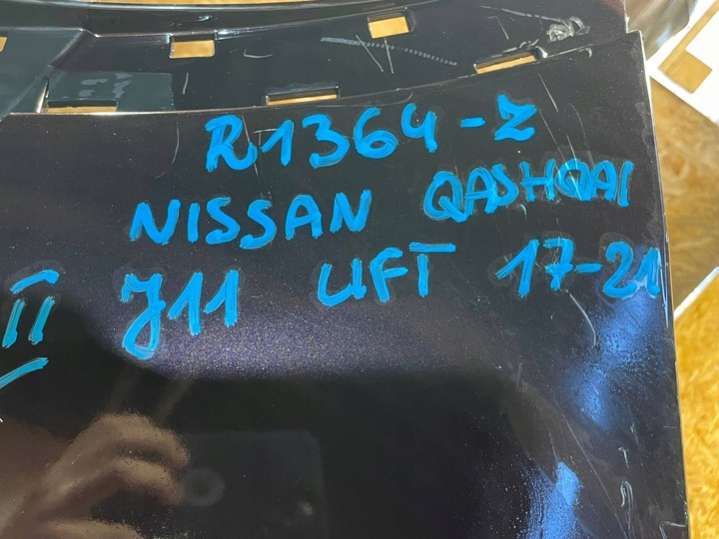 R1364-Z
NISSAN QASHQAI
II J11 LIFT 17-21